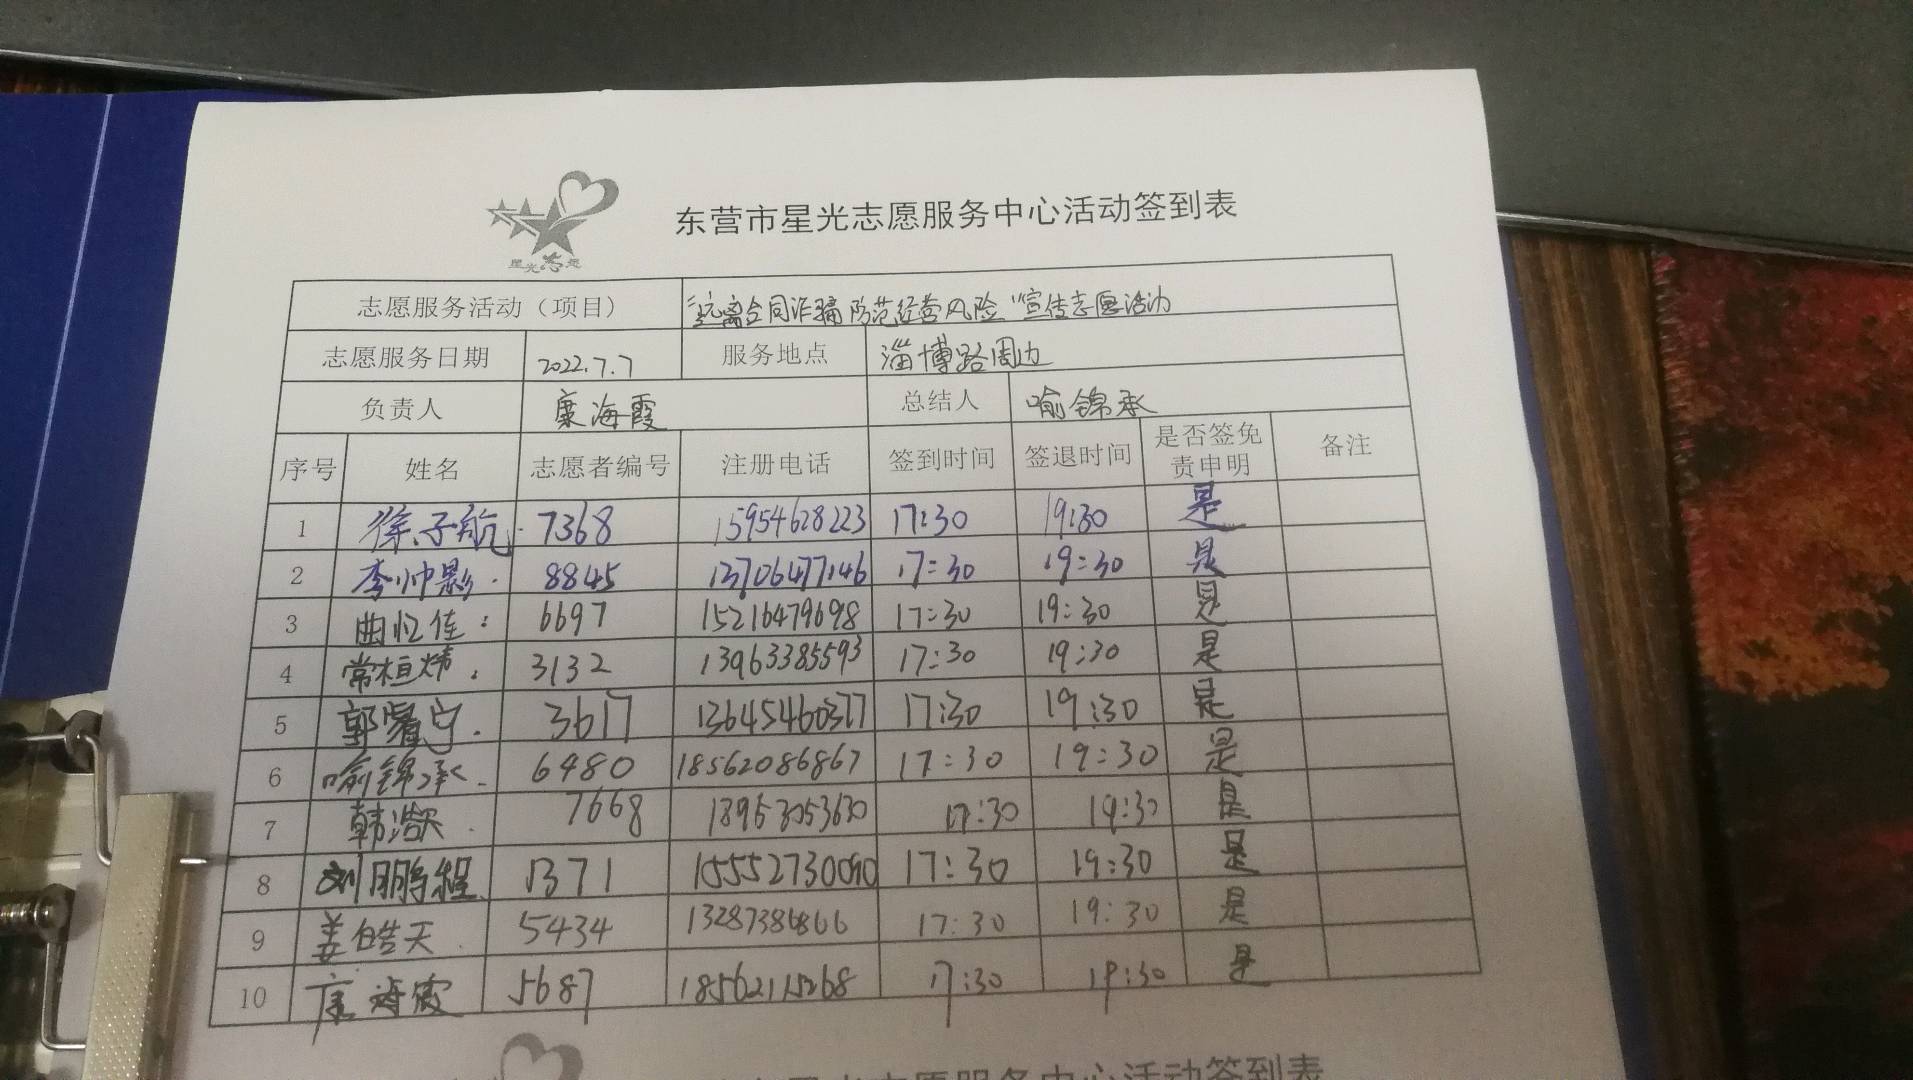 东营市星光志愿服务中心活动签到表
星光志愿
志愿服务活动（项目） “远离合同诈骗 防范经营风险”宣传志愿活动
志愿服务日期 2022.7.7 服务地点 淄博路周边
负责人 康海霞 总结人 喻锦承
序号 姓名 志愿者编号 注册电话 签到时间 签退时间 是否签免责申明 备注
1 徐子航 7368 15954628223 17:30 19:30 是
2 李帅影 8845 13706477146 17:30 19:30 是
3 曲忆佳 6697 15216479698 17:30 19:30 是
4 常桓炜 3132 13963385593 17:30 19:30 是
5 郭 宁 3617 13645460377 17:30 19:30 是
6 喻锦承 6480 18562086867 17:30 19:30 是
7 韩 7668 18953053630 17:30 19:30 是
8 刘鹏程 1371 15552730090 17:30 19:30 是
9 姜皓天 5434 13287386866 17:30 19:30 是
10 康海霞 5687 18562115268 17:30 19:30 是
星光志愿服务中心活动签到表